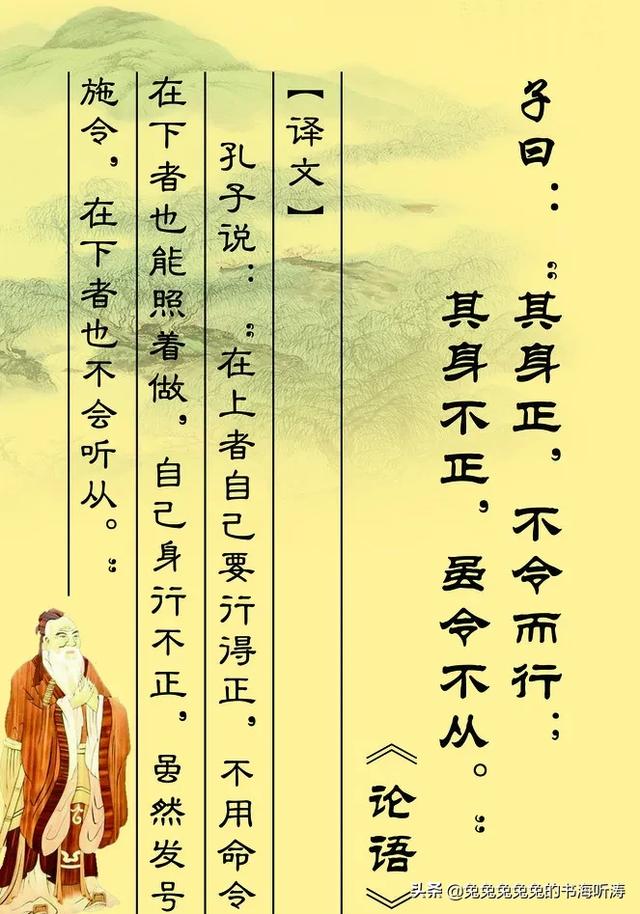 子曰：“其身正，不令而行；
其身不正，虽令不从。”
《论语》
【译文】
孔子说：“在上者自己要行得正，不用命令
在下者也能照着做，自己身行不正，虽然发号
施令，在下者也不会听从。”
头条 @兔兔兔兔兔的书海听涛